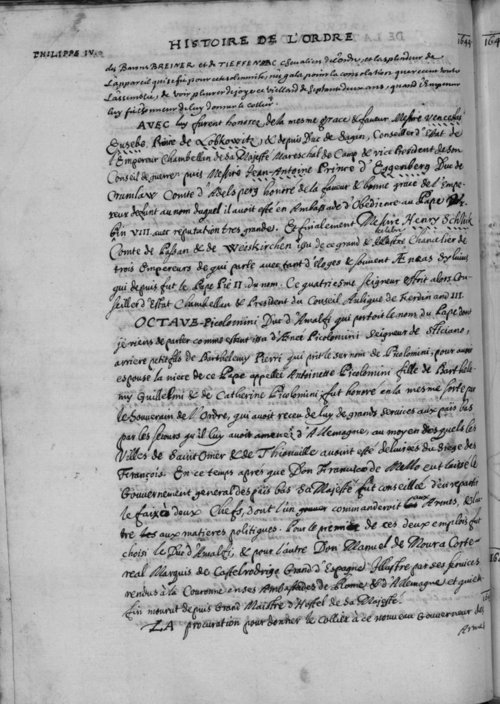 HISTOIRE DE L'ORDRE
PHILIPPE IV
des Barons BREINER et de TIEFFENBAC chevaliers de l'ordre, et la splendeur de
l'appareil qui se fit pour cette solennité, n'égala point la consolation que receut toute
l'assemblée, de voir pleurer de joye ce vieillard de septante deux ans, quand l'Empereur
luy fit l'honneur de luy donner le collier.
AVEC luy furent honorez de la mesme grace & faveur Messire Venceslas
Eusebe Prince de Lobkowitz & depuis Duc de Sagan, Conseiller d'Estat de
l'Empereur Chambellan de sa Majesté Mareschal de Camp & vice President de son
Conseil de guerre puis Messire Jean-Antoine Prince d'Eggenberg Duc de
Crumlaw Comte d'Adelsperg honoré de la faveur & bonne grace de l'Empe-
reur defunt au nom duquel il avoit esté en Ambassade d'Obedience au Pape Ur-
bin VIII avec reputation tres grande. Et finalement Messire Henry Schlick
Comte de Passan & de Weiskirchen issu de ce grand & illustre Chancelier de
trois Empereurs de qui parle avec tant d'éloges & souvent Æneas Sylvius
qui depuis fut le Pape Pie II du nom. Ce quatriesme seigneur estoit alors Con-
seiller d'Estat Chambellan & President du Conseil Aulique de Ferdinand III.
OCTAVE-Picolomini Duc d'Amalfi qui portoit le nom du Pape dont
je viens de parler comme estant issu d'Ænea Picolomini Seigneur de Sticiano,
arriere petit fils de Barthelemy Pierri qui prit le surnom de Picolomini, pour avoir
espousé la niece de ce Pape appellée Antoinette Picolomini fille de Barthele-
my Guillelmi & de Catherine Picolomini fut honoré en la mesme sorte par
le Souverain de l'Ordre, qui avoit receu de luy de grands services aux pais bas
par les secours qu'il luy avoit amenez d'Allemagne au moyen desquels les
Villes de Saint Omer & de Thionville avoient esté delivrées du siege des
François. En ce temps apres que Don Francisco de Mello eut laissé le
Gouvernement general des pais bas Sa Majesté fut conseillé d'en repartir
le faix à deux Chefs, dont l'un commanderoit aux Armes, & l'au-
tre aux matieres politiques. Pour le premier de ces deux emplois fut
choisi le Duc d'Amalfi, & pour l'autre Don Manuel de Moura Corte-
real Marquis de Castelrodrigo Grand d'Espagne illustre par ses services
rendus à la Couronne en ses Ambassades de Rome & d'Allemagne et qui en
fin mourut depuis Grand Maistre d'Hostel de Sa Majesté.
LA procuration pour donner le collier à ce nouveau Gouverneur des
Armes